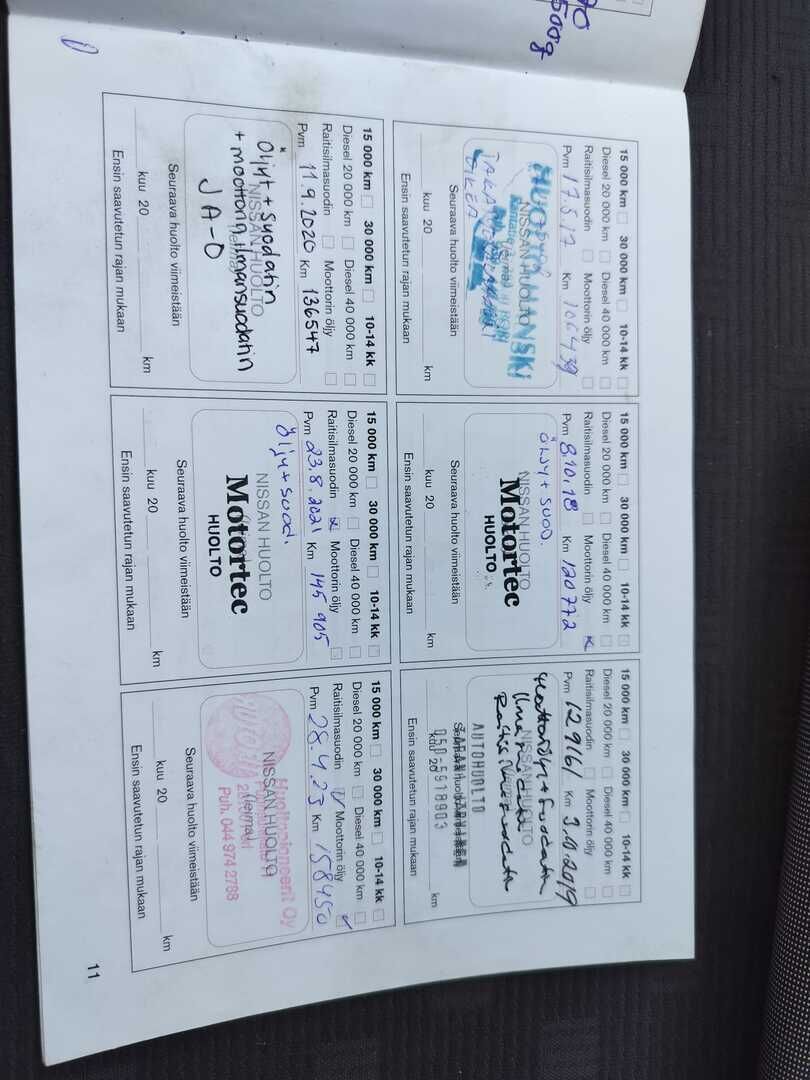 500g
15 000 km 30 000 km 10-14 kk
Diesel 20 000 km Diesel 40 000 km
Raitisilmasuodin Moottorin öljy
Pvm 17.5.17 Km 106439
NISSAN HUOLTO
Seuraava huolto viimeistään
kuu 20 km
Ensin saavutetun rajan mukaan
15 000 km 30 000 km 10-14 kk
Diesel 20 000 km Diesel 40 000 km
Raitisilmasuodin Moottorin öljy
Pvm 8.10.18 Km 120772
ÖLJYT + SUOD.
NISSAN HUOLTO
Motortec
HUOLTO
Seuraava huolto viimeistään
kuu 20 km
Ensin saavutetun rajan mukaan
15 000 km 30 000 km 10-14 kk
Diesel 20 000 km Diesel 40 000 km
Raitisilmasuodin Moottorin öljy
Pvm 129161 Km 3.10.2019
NISSAN HUOLTO
AUTOHUOLTO
Seuraava huolto viimeistään
050-5918903
kuu 20 km
Ensin saavutetun rajan mukaan
15 000 km 30 000 km 10-14 kk
Diesel 20 000 km Diesel 40 000 km
Raitisilmasuodin Moottorin öljy
Pvm 11.9.2020 Km 136547
Öljyt + suodatin
NISSAN HUOLTO
+ moottorin ilmansuodatin
JA-O
Seuraava huolto viimeistään
kuu 20 km
Ensin saavutetun rajan mukaan
15 000 km 30 000 km 10-14 kk
Diesel 20 000 km Diesel 40 000 km
Raitisilmasuodin Moottorin öljy
Pvm 23.8.2021 Km 145 905
Öljy + suod.
NISSAN HUOLTO
Motortec
HUOLTO
Seuraava huolto viimeistään
kuu 20 km
Ensin saavutetun rajan mukaan
15 000 km 30 000 km 10-14 kk
Diesel 20 000 km Diesel 40 000 km
Raitisilmasuodin Moottorin öljy
Pvm 28.4.23 Km 158450
Huoltopioneerit Oy
NISSAN HUOLTO
Puh. 044 974 2788
Seuraava huolto viimeistään
kuu 20 km
Ensin saavutetun rajan mukaan
11